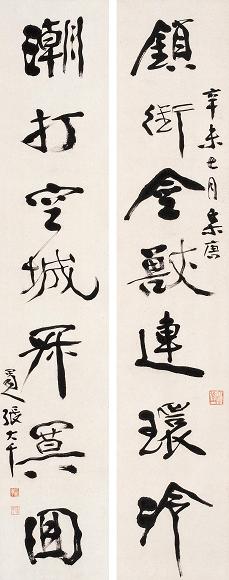 鎖銜金獸連環冷
辛未七月集唐
潮打空城寂寞回
蜀人張大千